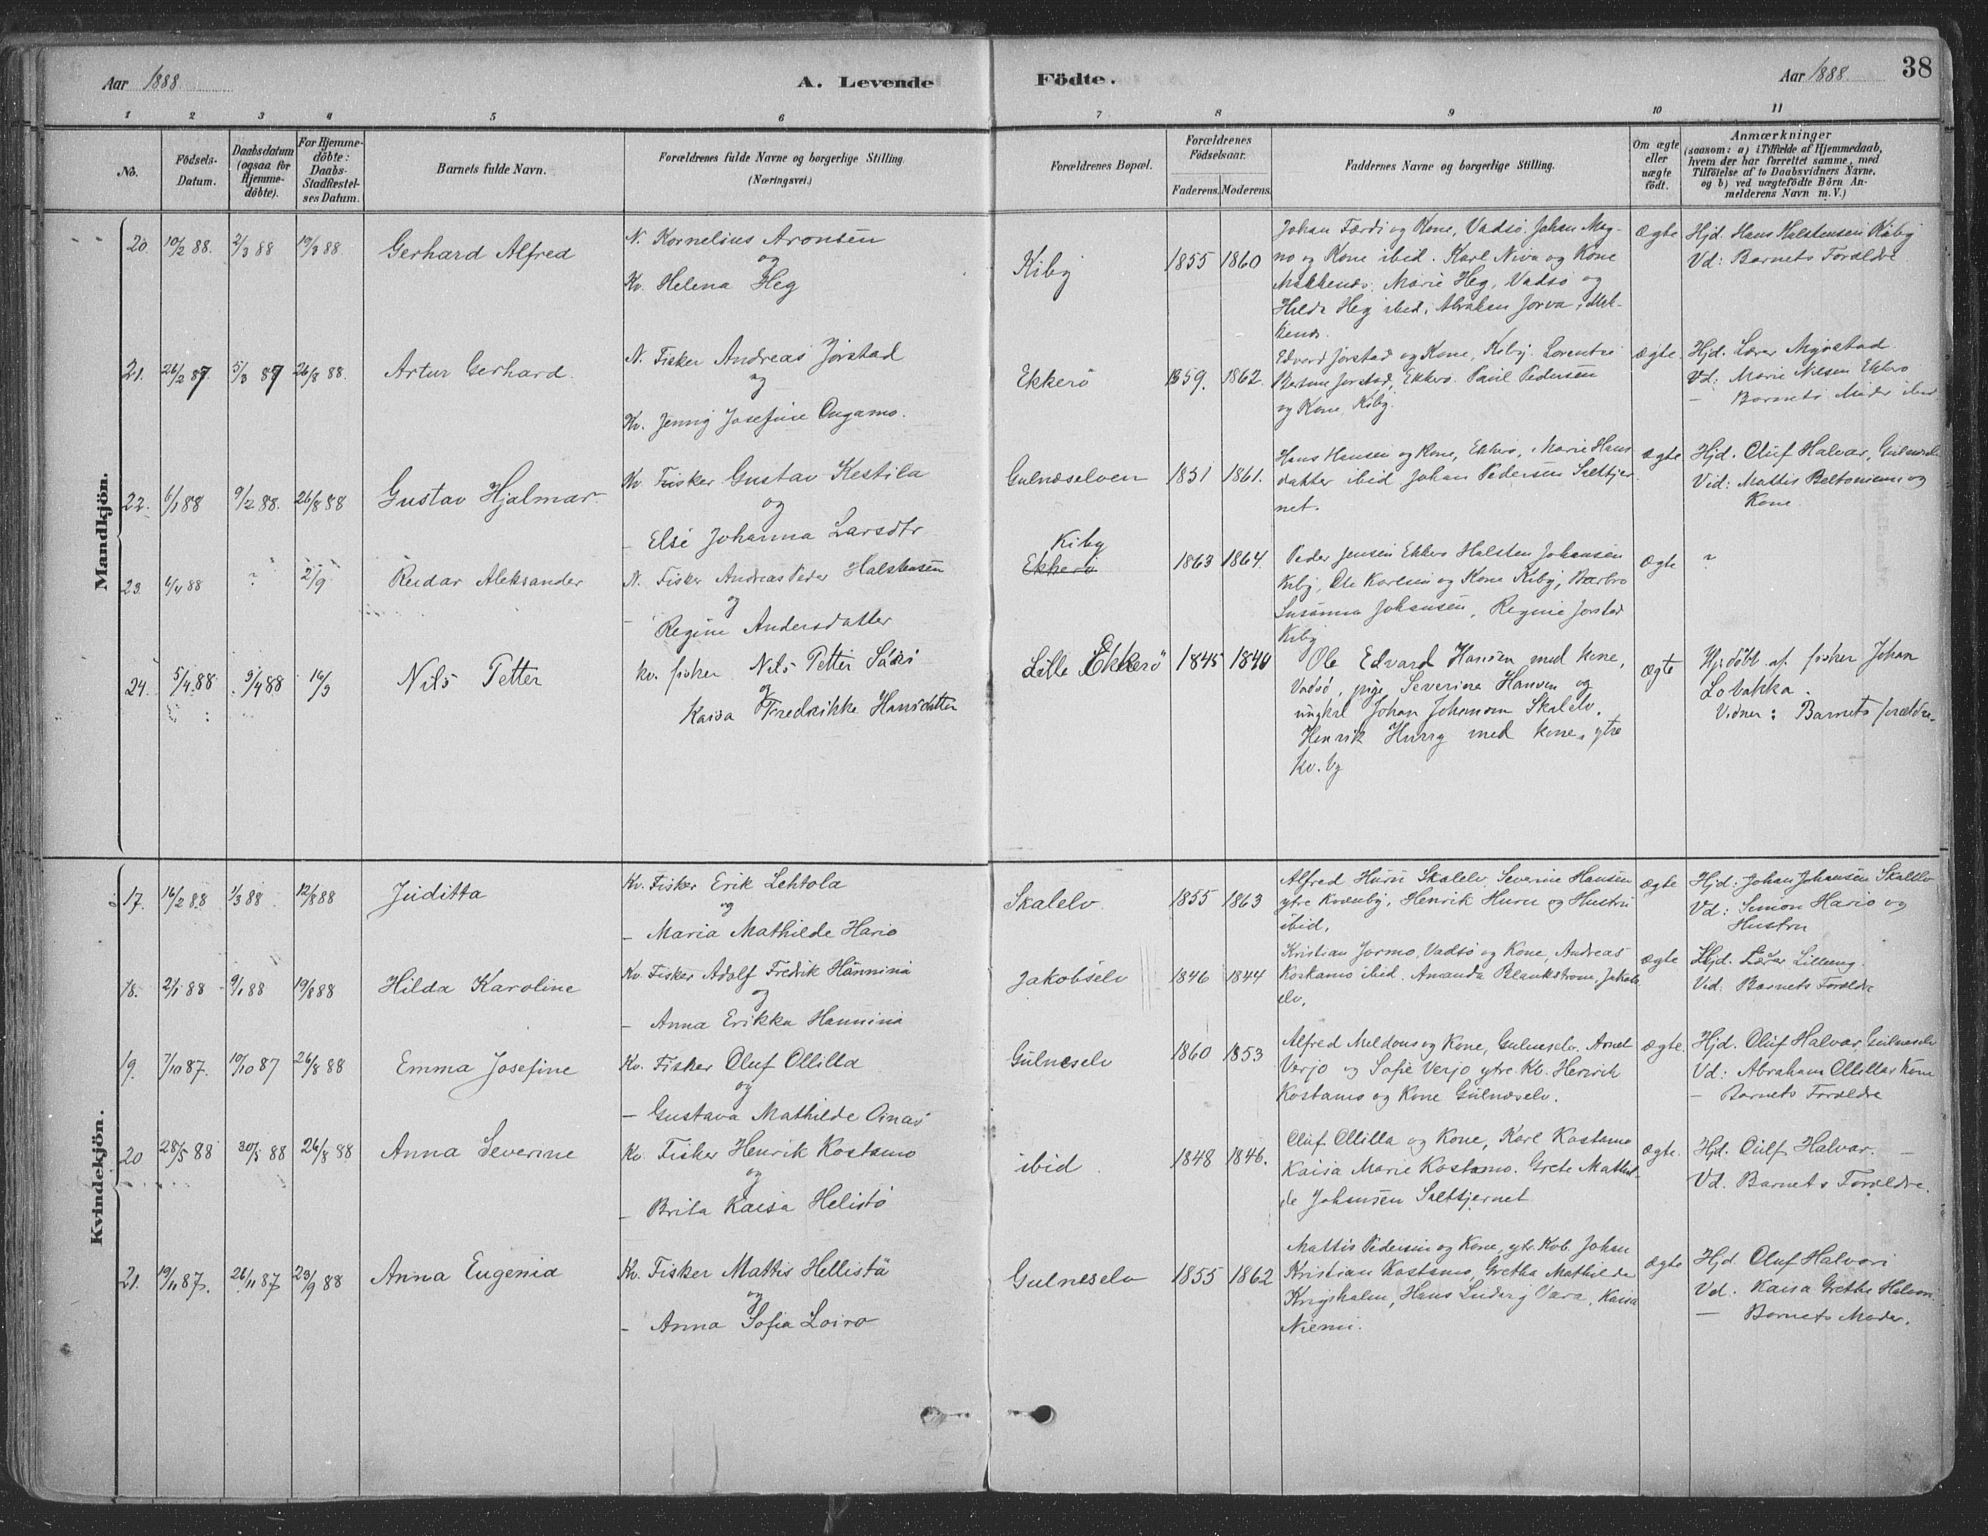 Aar 1888.
A. Levende
Födte.
Aar 1888.
38
1 2 3 4 5 6 7 8 9 10 11
No.
Födsels-
Datum.
Daabsdatum
(ogsaa for
Hjemme-
döbte).
For Hjemme-
döbte:
Daabs-
Stadfæstel-
ses Datum.
Barnets fulde Navn.
Forældrenes fulde Navne og borgerlige Stilling.
(Næringsvei.)
Forældrenes Bopæl.
Forældrenes
Födselsaar.
Faderens. Moderens.
Faddernes Navne og borgerlige Stilling.
Om ægte
eller
uægte
födt.
Anmærkninger
(saasom: a) i Tilfælde af Hjemmedaab,
hvem der har forrettet samme, med
Tilföielse af to Daabsvidners Navne,
og b) ved uægtefödte Börn An-
melderens Navn m. V.)
Mandkjön.
20. 10/2 88. 2/3 88 19/3 88
Gerhard Alfred
N. Kornelius Aronsen
og
Kv. Helena Heg
Kiby
1855 1860
Johan Færdi og Kone, Vadsö. Johan Mag-
no og Kone ibid. Karl Niva og Kone
Makkenæs. Marie Heg, Vadsö og
Hilda Heg ibid. Abraham Jorva, Mak-
kenæs.
Ægte
Hjd. Hans Halstensen Kiby
Vd: Barnets Forældre
21. 26/2 87 5/3 87 26/8 88.
Artur Gerhard.
N. Fisker Andreas Jørstad
og
Kv. Jenny Josefine Ongamo.
Ekkerö
1859. 1862.
Edvard Jørstad og Kone, Kiby. Lorentse
Jørstad, Ekkerö. Paul Pedersen
og Kone, Kiby.
ægte
Hjd. Lærer Myrstad
Vd: Marie Nilsen Ekkerö
— Barnets Moder ibid
22. 6/1 88 9/2 88. 26/8 88
Gustav Hjalmar
Kv Fisker Gustav Kestila
og
— Else Johanna Larsdtr
Gulneselven
1851 1861.
Hans Hansen og Kone, Ekkerö, Marie Hans
datter ibid Johan Pedersen Saltkjer
net.
ægte
Hjd. Oluf Halvar, Gulneselv
Vid: Mattis Beltoniemi og
Kone
23. 4/4 88 ? 2/9
Reidar Aleksander
N. Fisker Andreas Peder Halstensen
og
— Regine Andersdatter
Kiby
Ekkerö
1863 1864.
Peder Jensen Ekkerö Halsten Johansen
Kiby, Ole Karlsen og Kone Kiby, Barbro
Susanna Johansen, Regine Jorstad
Kiby
Ægte
?
24. 5/4 88 9/4 88 16/3
Nils Petter
kv. fisker Nils Petter Säkki
og
Kaisa Fredrikke Hansdatter
Lille Ekkerö
1845 1840
Ole Edvard Hansen med kone,
Vadsö, pige Severine Hansen og
ungkrl Johan Johansen Skalelv.
Henrik Hurry med kone, ytre
kv.by
ægte
Hjedöbt af fisker Johan
Lobakka.
Vidner: Barnets forældre.
Kvindekjön.
17. 16/2 88 1/3 88 12/8 88
Juditta
Kv. Fisker Erik Lehtola
og
— Maria Mathilde Hario
Skalelv
1855 1863
Alfred Huru Skalelv, Severine Hansen
ytre Kvænby, Henrik Huru og Hustru
ibid,
ægte
Hjd: Johan Johansen Skalelv
Vd: Simon Hario og
Hustru
18. 2/1 88 9/1 88 19/8 88
Hilda Karoline
Kv. Fisker Adolf Fredrik Hännina
og
— Anna Erikka Hannina
Jakobselv
1846 1844
Kristian Jormo, Vadsö og Kone, Andreas
Kostamo ibid. Amanda Blankstrom, Jakobs
elv.
ægte
Hjd. Lærer Lilleng.
Vid: Barnets Forældre
19. 7/10 87. 10/10 87 26/8 88
Emma Josefine
Kv. Fisker Oluf Ollilla
og
— Gustava Mathilde Oinas
Gulneselv
1860 1853
Alfred Meldous og Kone, Gulneselv.
Verjo og Sofie Verjo ytre Kb. Henrik
Kostamo og Kone Gulneselv.
ægte.
Hjd. Oluf Halvar, Gulneselv
Vd: Abraham Ollilla Kone
— Barnets Forældre
20 28/5 88 30/5 88 26/8 88
Anna Severine
Kv. Fisker Henrik Kostamo
og
— Brita Kaisa Helistö
ibid.
1848 1846.
Oluf Ollilla og Kone, Karl Kostamo
Kaisa Marie Kostamo. Grete Mathil-
de Johansen Saltkjernet
ægte.
Hjd. Oulf Halvar. —
Vd. Barnets Forældre.
21. 19/11 87. 26/11 87 23/9 88
Anna Eugenia
Kv. Fisker Mattis Hellistä
og
— Anna Sofia Loiro
Gulneselv
1855 1862
Mattis Pedersen og Kone, ytr Kvb. Johan
Kristian Kostamo, Gretha Mathilde
Krigsholm, Hans Ludvig Vara, Kaisa
Niemi.
ægte
Hjd. Oluf Halvari
Vd. Kaisa Grethe Halvari
— Barnets Moder.